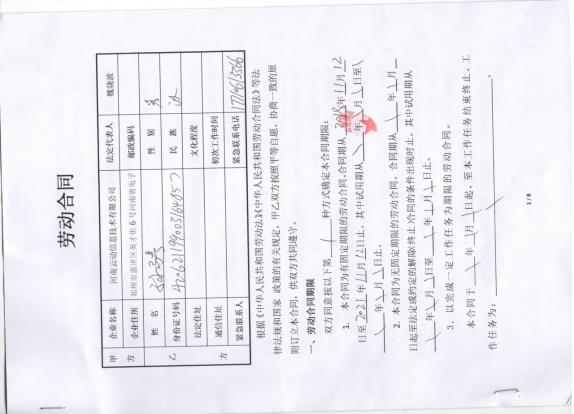 劳动合同
甲 企业名称 河南云动信息技术有限公司 法定代表人 魏骁波
方 企业住所 郑州市嘉济区英才街6号河南省电子 邮政编码
姓 名 性 别 男
乙 身份证号码 民 族 汉
法定住址 文化程度
通信住址 初次工作时间
方 紧急联系人 紧急联系电话
根据《中华人民共和国劳动法》《中华人民共和国劳动合同法》等法
律法规和国家 政策的有关规定，甲乙双方按照平等自愿、协商一致的原
则订立本合同，供双方共同遵守。
一、劳动合同期限
双方同意按以下第 1 种方式确定本合同期限：
1．本合同为有固定期限的劳动合同，合同期从 2018 年 11 月 12
日至 2021 年 11 月 12 日止。其中试用期从 \ 年 \ 月 \ 日至 \
\ 年 \ 月 \ 日止。
2．本合同为无固定期限的劳动合同，合同期从 \ 年 \ 月
日起至法定或约定的解除(终止)合同的条件出现时止。其中试用期从
\ 年 \ 月 \ 日至 \ 年 \ 月 \ 日止。
3．以完成一定工作任务为期限的劳动合同。
本合同于 \ 年 \ 月 \ 日起，至本工作任务结束终止。工
作任务为： \ 。
1/8